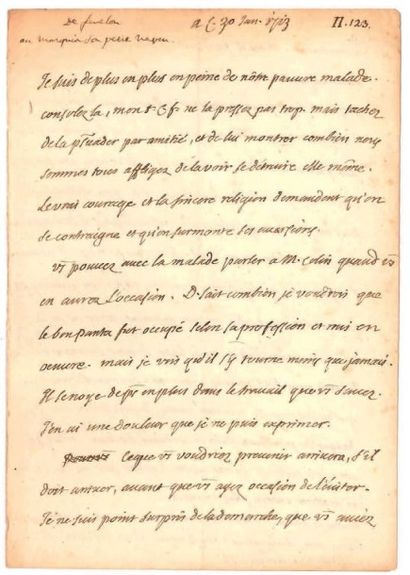 De fenelon
au marquis son petit neveu.
a C. 30 Jan. 1713
Π. 123.
Je suis de plus en plus en peine de nôtre pauvre malade.
consolez la, mon t. C. f. ne la pressez pas trop. mais tachez
de la psuader par amitié, et de lui montrer combien nous
sommes tous affligez de la voir se détruire elle même.
Le vrai courage et la sincere religion demandent qu'on
se contraigne et qu'on surmonte ses aversions.
vs pouvez avec la malade parler a M. Colin quand vs
en aurez l'occasion. Il sait combien je voudrois que
le bon panta fut occupé selon sa profession et mis en
oeuvre. mais je vois qu'il s'y tourne moins que jamais.
Il se noye de ps en plus dans le travail que vs savez.
J'en ai une douleur que je ne puis exprimer.
Ce que vs voudriez prevenir arrivera, s'il
doit arriver, avant que vs ayez occasion de l'éviter.
Je ne suis point surpris de la demarche, que vs aviez